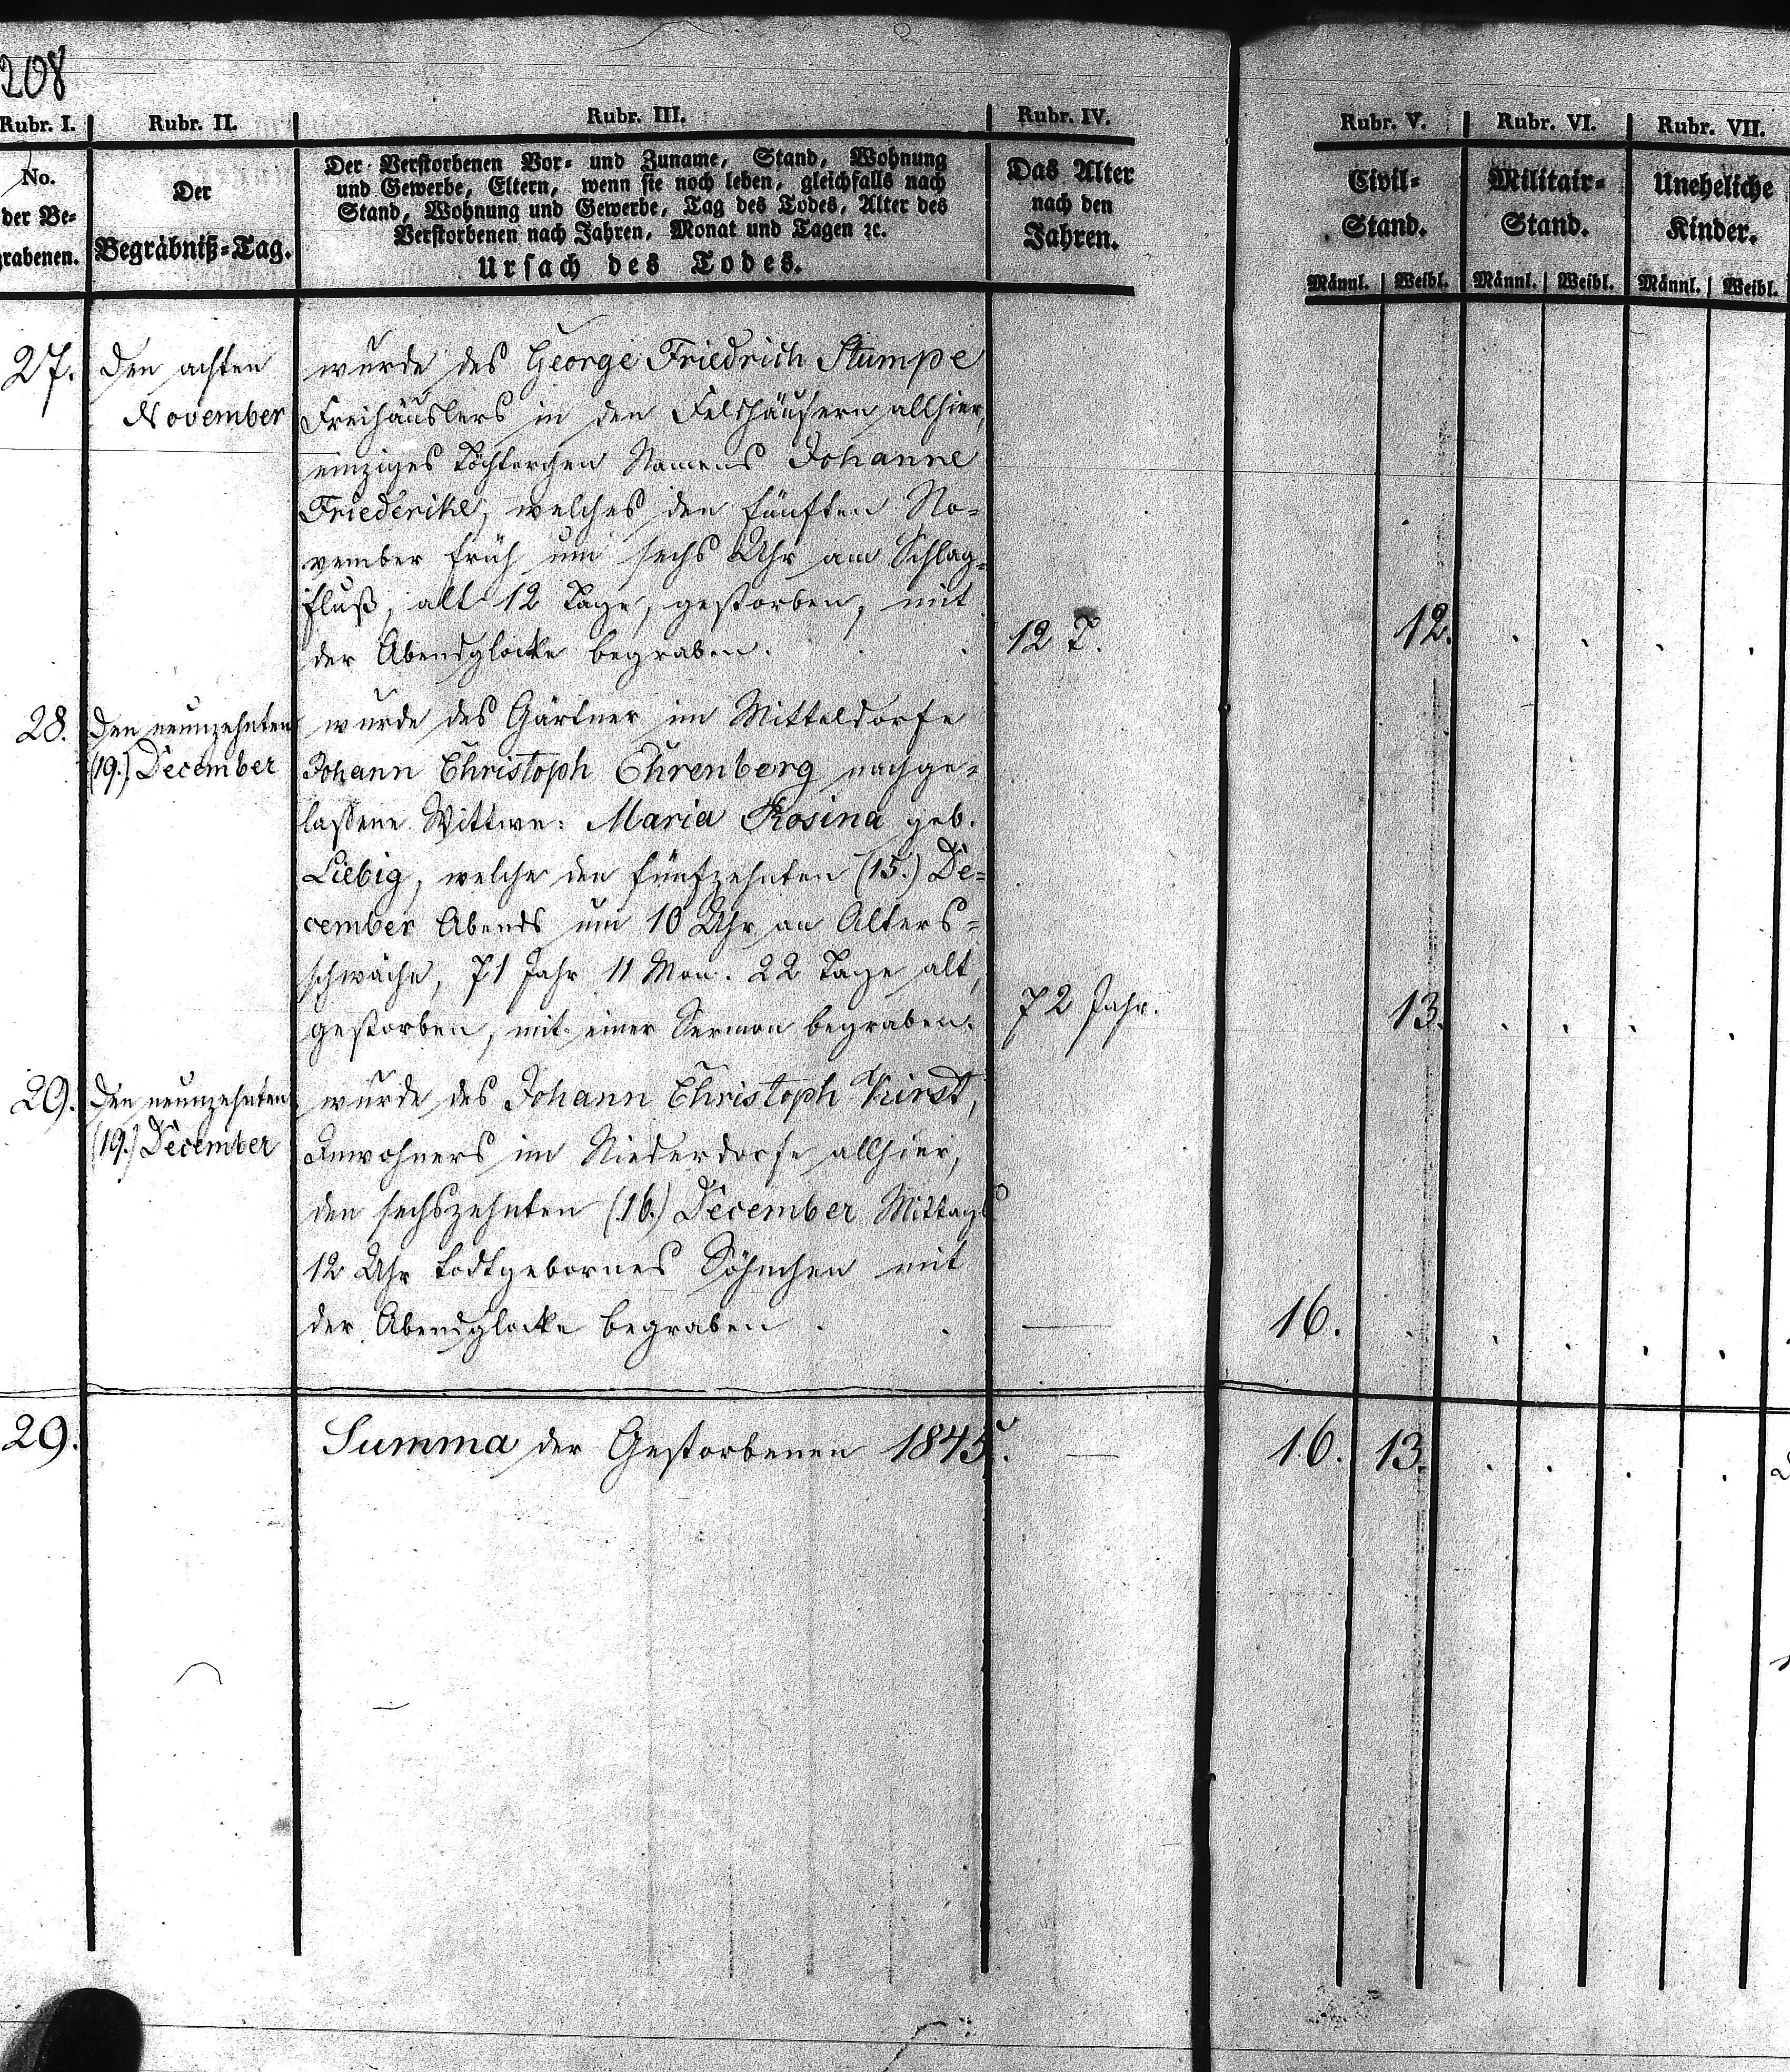 208
Rubr. I.
Rubr. II.
Rubr. III.
Rubr. IV.
Rubr. V.
Rubr. VI.
Rubr. VII.
No.
der Be-
grabenen.
Der
Begräbniß-Tag.
Der Verstorbenen Vor- und Zuname, Stand, Wohnung
und Gewerbe, Eltern, wenn sie noch leben, gleichfalls nach
Stand, Wohnung und Gewerbe, Tag des Todes, Alter des
Verstorbenen nach Jahren, Monat und Tagen ꝛc.
Ursach des Todes.
Das Alter
nach den
Jahren.
Civil-
Stand.
Männl. | Weibl.
Militair-
Stand.
Männl. | Weibl.
Uneheliche
Kinder.
Männl. | Weibl.
27.
Den achten
November
wurde des George Friedrich Stumpe
Freihäuslers in den Feldhäusern allhier,
einziges Töchterchen Namens Johanne
Friederike, welches den fünften No-
vember früh um sechs Uhr am Schlag-
fluß, alt 12 Tage, gestorben, mit
der Abendglocke begraben.
12 T.
12.
28.
Den neunzehnten
(19.) December
wurde des Gärtner im Mitteldorfe
Johann Christoph Ehrenberg nachge-
lassene Wittwe: Maria Rosina geb.
Liebig, welche den fünfzehnten (15.) De-
cember Abends um 10 Uhr an Alters-
schwäche, 71 Jahr 11 Mon. 22 Tage alt,
gestorben, mit einer Sermon begraben.
72 Jahr.
13.
29.
Den neunzehnten
(19.) December
wurde des Johann Christoph Kirst,
Inwohners im Niederdorfe allhier,
den sechszehnten (16.) December Mittags
12 Uhr todtgebornes Söhnchen mit
der Abendglocke begraben.
16.
29.
Summa der Gestorbenen 1845.
16. 13.